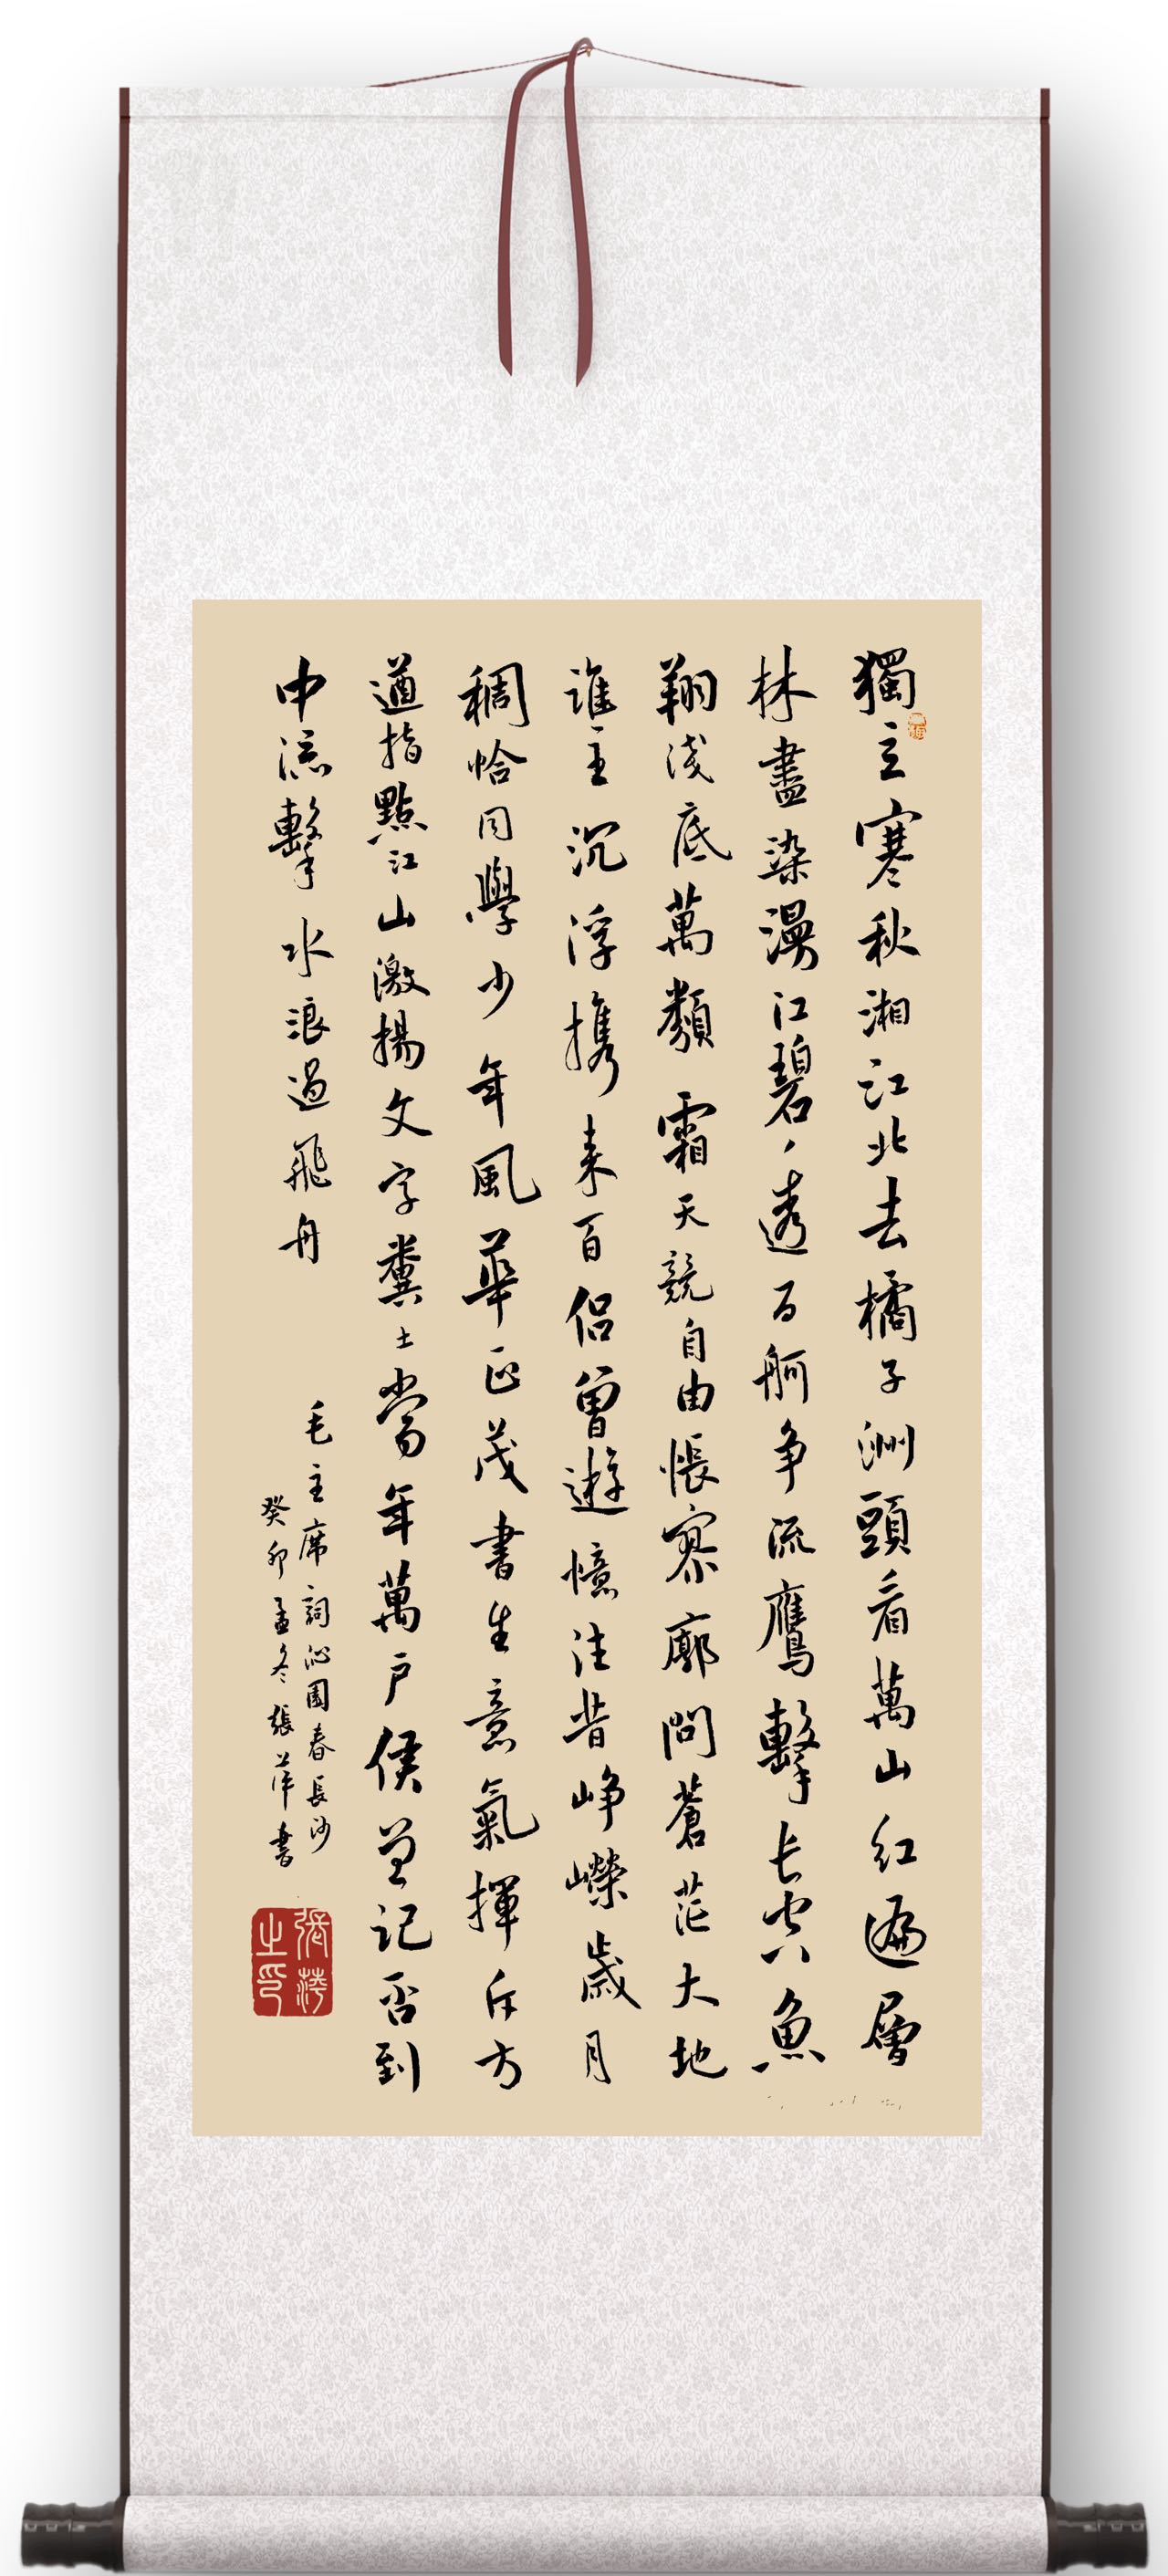 獨立寒秋湘江北去橘子洲頭看萬山紅遍層
林盡染漫江碧丶透百舸争流鷹擊长空魚
翔淺底萬類霜天競自由悵寥廓問蒼茫大地
誰主沉浮携来百侣曾遊憶往昔峥嶸歲月
稠恰同學少年風華正茂書生意氣揮斥方
遒指點江山激揚文字糞土當年萬户侯曾记否到
中流擊水浪遏飛舟
毛主席詞沁園春長沙
癸卯孟冬張萍書
張萍之印